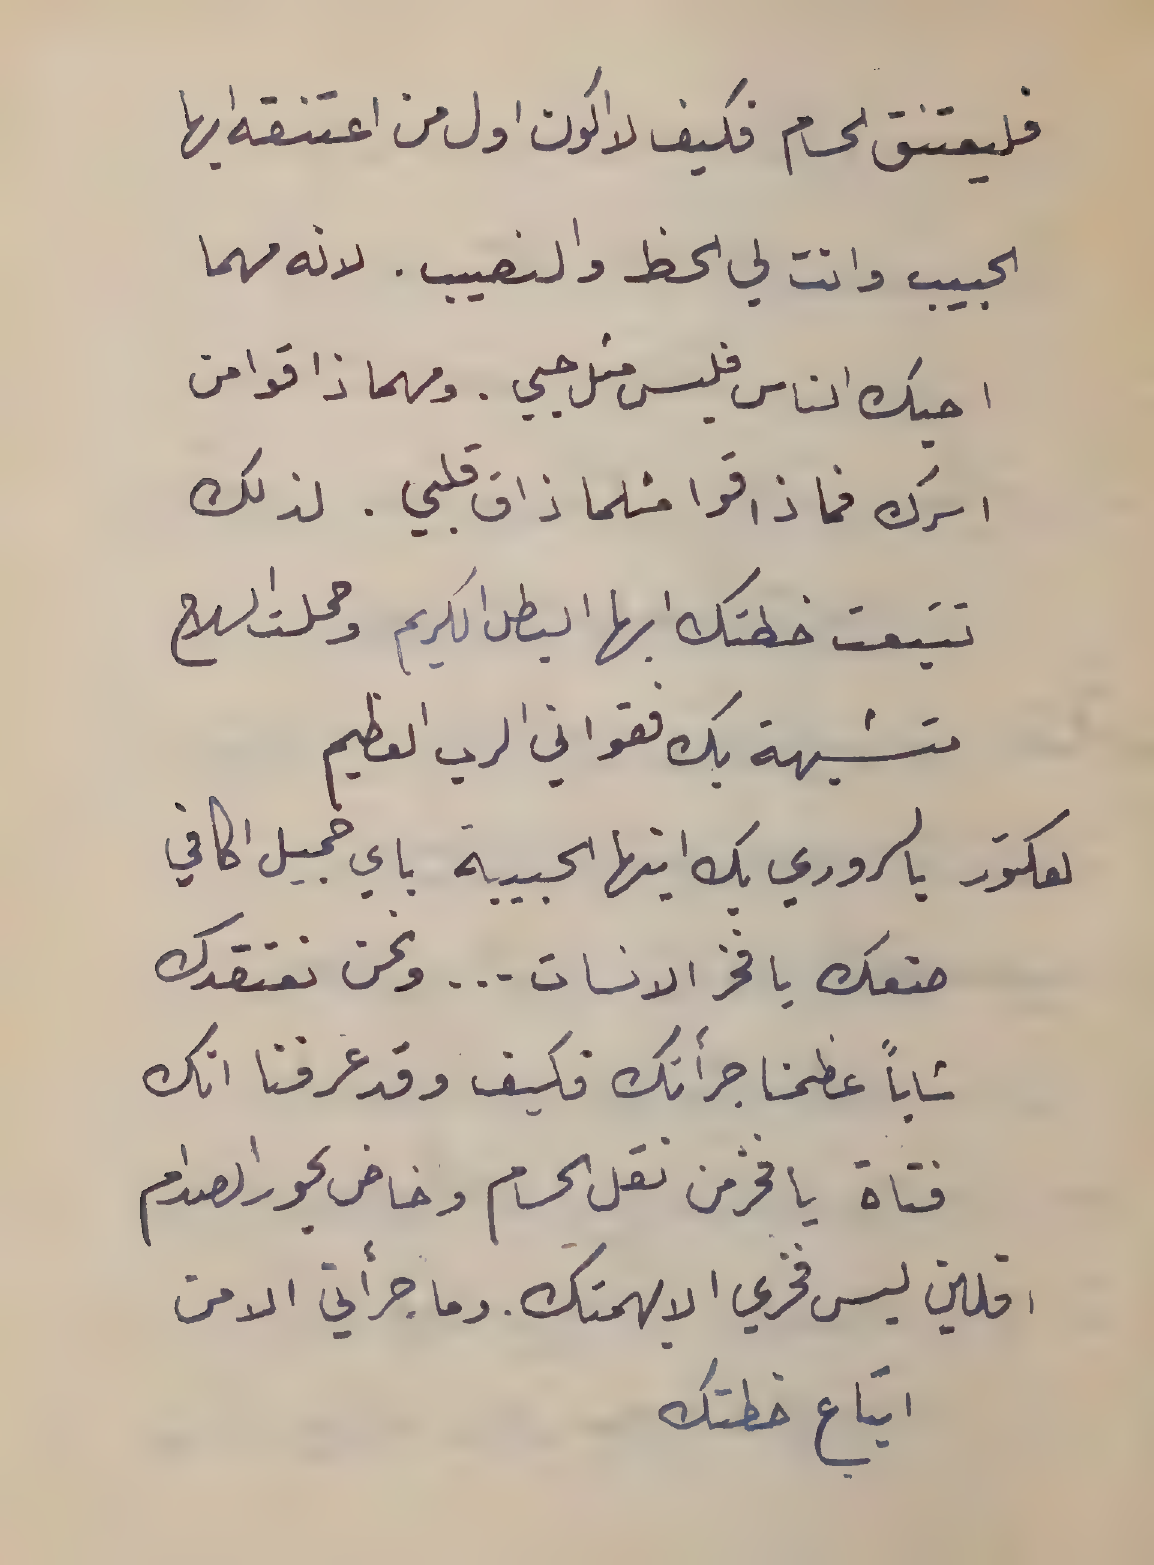 فليعتنق الحسام فكيف لا اكون اول من اعتنقه ايها
الحبيب وانت لي الحظ والنصيب. لانه مهما
احبك الناس فليس مثل حبي. ومهما ذاقوا من
اسرك فما ذاقوا مثلما ذاق قلبي. لذلك
تتبعت خطتك ايها البطل الكريم وحملت السلاح
متشبهة بك فقواني الرب العظيم
لعكتور يا لسروري بك ايتها الحبيبة باي جميل اكافي
صنعك يا فخر الانسات ... ونحن نعتقدك
شاباً عظمنا جرأتك فكيف وقد عرفنا انك
فتاة يا فخر من نقل الحسام وخاض بحور الصدام
اقلاين ليس فخري الا بهمتك. وما جرأتي الا من
اتباع خطتك